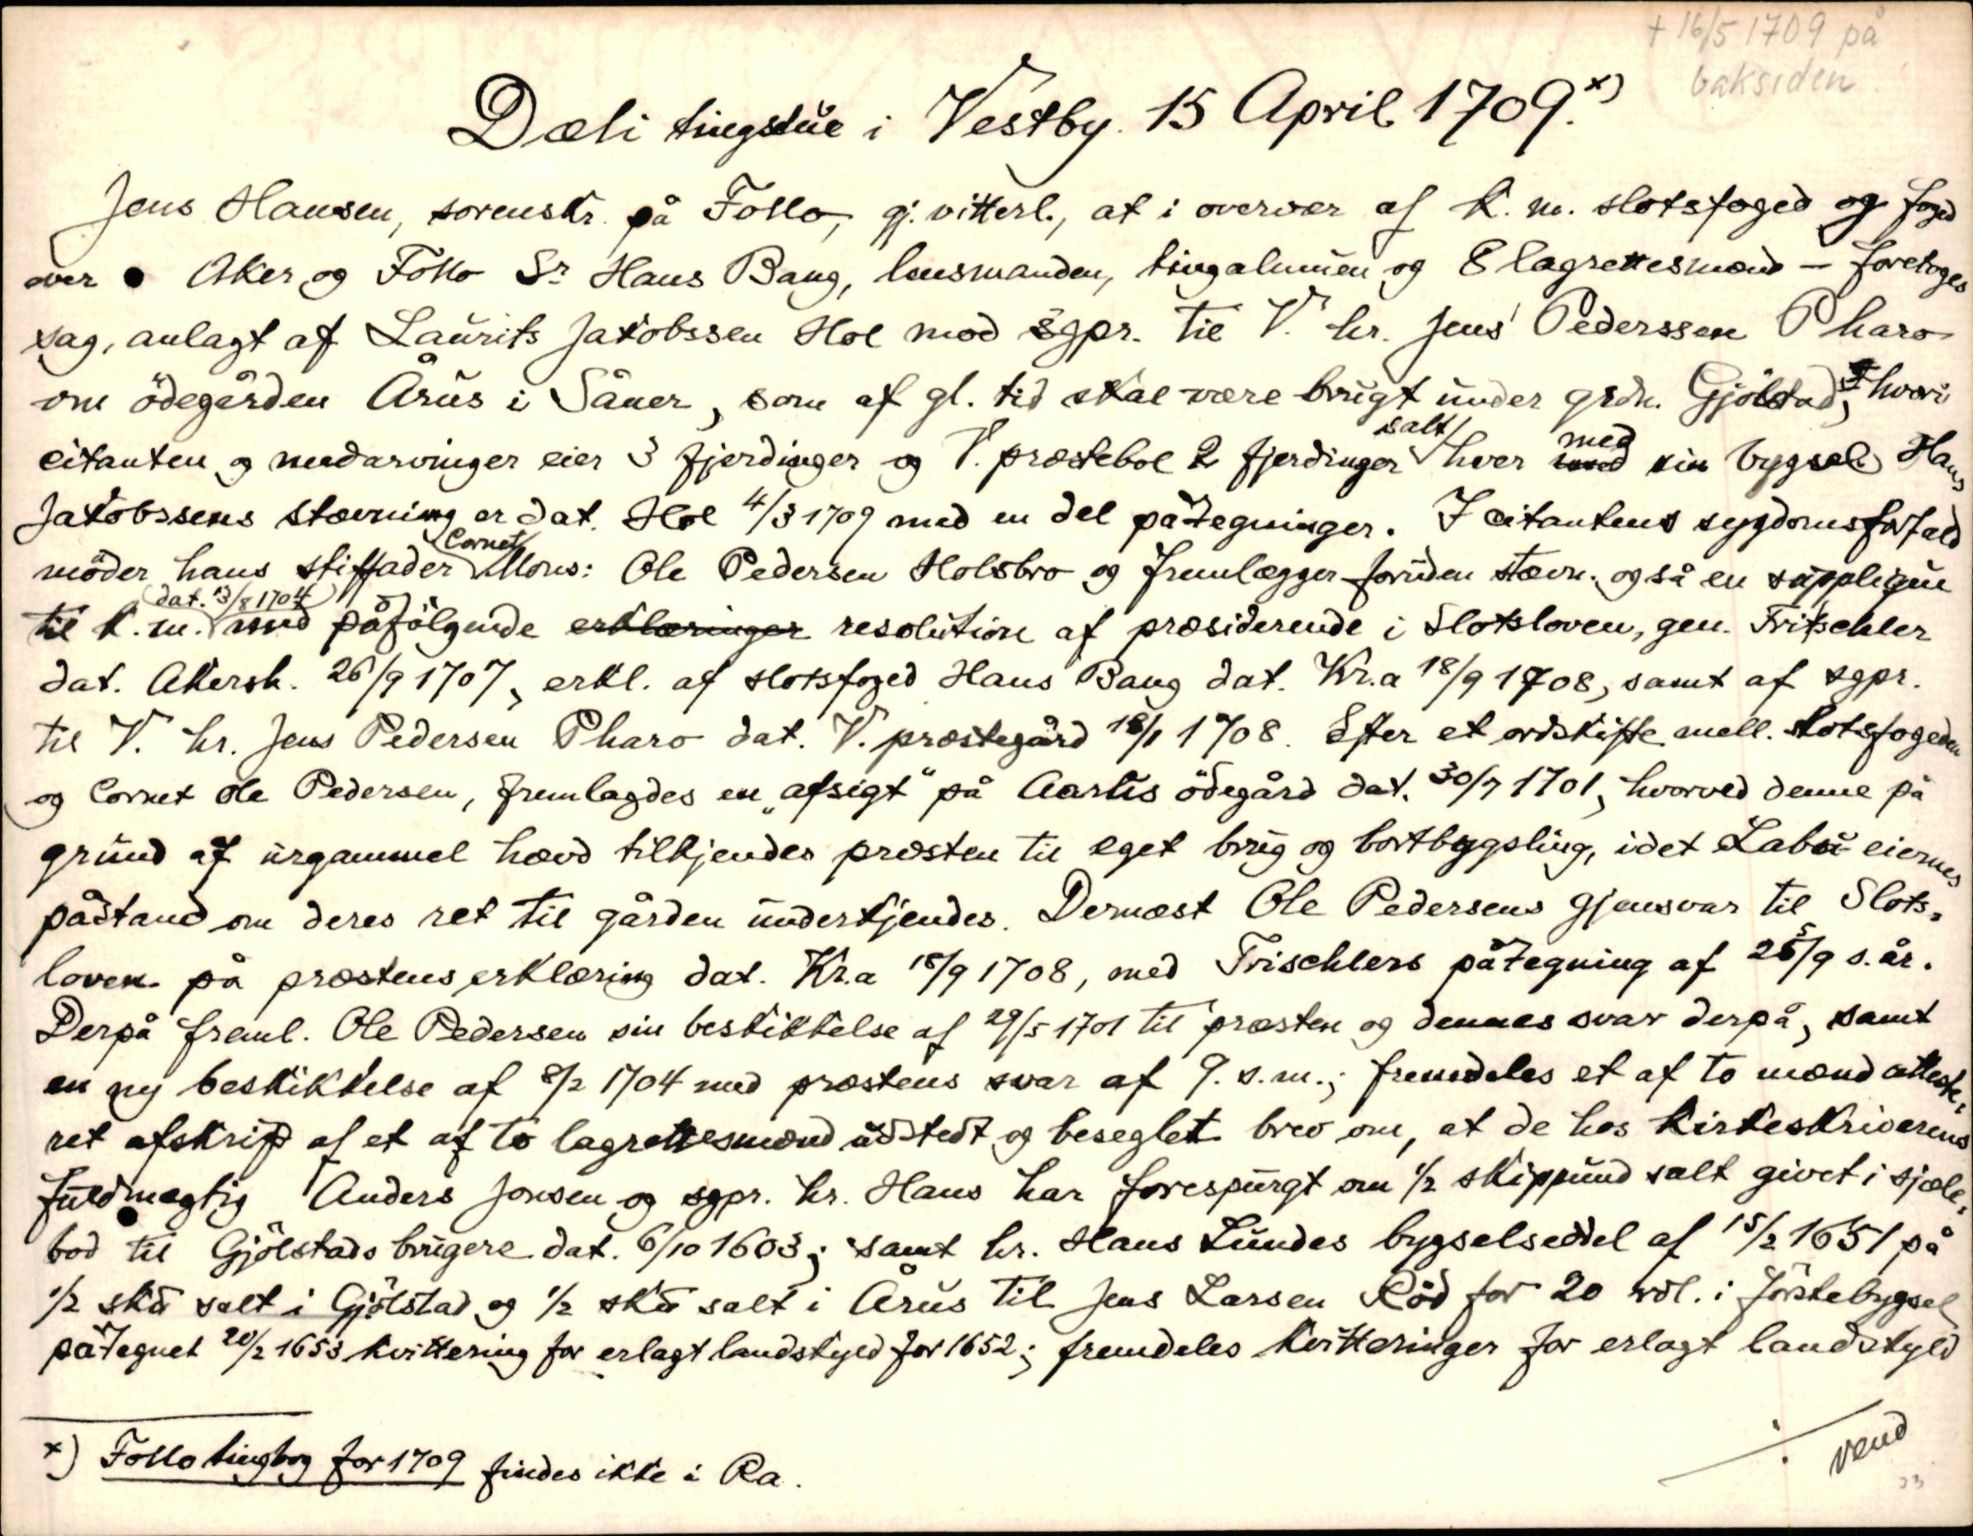 + 16/5 1709 på
baksiden
Dæli tingstue i Vestby. 15 April 1709. x)
Jens Hansen, sorenskr. på Follo, gj. vitterl., at i overvær af K. m. slotsfoged og foged
over Aker og Follo Sr Hans Bang, lensmanden, tingalmuen og 8 lagrettesmænd – foretoges
sag, anlagt af Laurits Jakobssen Hol mod sgpr. til V. hr. Jens Pederssen Pharo
om ödegården Årus i Såner, som af gl. tid skal være brugt under grdn. Gjölstad, hvori
citanten og medarvinger eier 3 fjerdinger og V. præstebol 2 fjerdinger salt hver med sin bygsel. Hans
Jakobssens stævning er dat. Hol 4/3 1709 med en del påtegninger. I citantens sygdomsforfald
möder hans stiffader Cornet Mons: Ole Pedersen Holsbro og fremlægger foruden stævn. også en supplique
til K. m. dat. 13/8 1704 med påfölgende erklæringer resolution af præsiderende i Slotsloven, gen. Tritschler
dat. Akersh. 26/9 1707, erkl. af slotsfoged Hans Bang dat. Kr.a 18/9 1708, samt af sgpr.
til V. hr. Jens Pedersen Pharo dat. V. præstegård 18/1 1708. Efter et ordskifte mell. slotsfogeden
og Cornet Ole Pedersen, fremlagdes en „afsigt“ på Aarus ödegård dat. 30/7 1701, hvorved denne på
grund af urgammel hævd tilkjendes præsten til eget brug og bortbygsling, idet Labu eiernes
påstand om deres ret til gården underkjendes. Dernæst Ole Pedersens gjensvar til Slots-
loven på præstens erklæring dat. Kr.a 18/9 1708, med Trischlers påtegning af 25/9 s. år.
Derpå freml. Ole Pedersen sin beskikkelse af 29/5 1701 til præsten og dennes svar derpå, samt
en ny beskikkelse af 8/2 1704 med præstens svar af 9. s. m.; fremdeles et af to mænd atteste-
ret afskrift af et af to lagrettesmænd udstedt og beseglet brev om, at de hos kirkeskriverens
fuldmægtig Anders Jonsen og sgpr. hr. Hans har forespurgt om 1/2 skippund salt givet i sjæle-
bod til Gjölstads brugere dat. 6/10 1603; samt hr. Hans Lundes bygselseddel af 15/2 1651 på
1/2 sk℔ salt i Gjölstad og 1/2 sk℔ salt i Årus til Jens Larsen Röd for 20 rdl. i förstebygsel
påtegnet 20/2 1653 kvittering for erlagt landskyld for 1652; fremdeles kvitteringer for erlagt landskyld
x) Follo tingbog for 1709 findes ikke i Ra.
vend
23